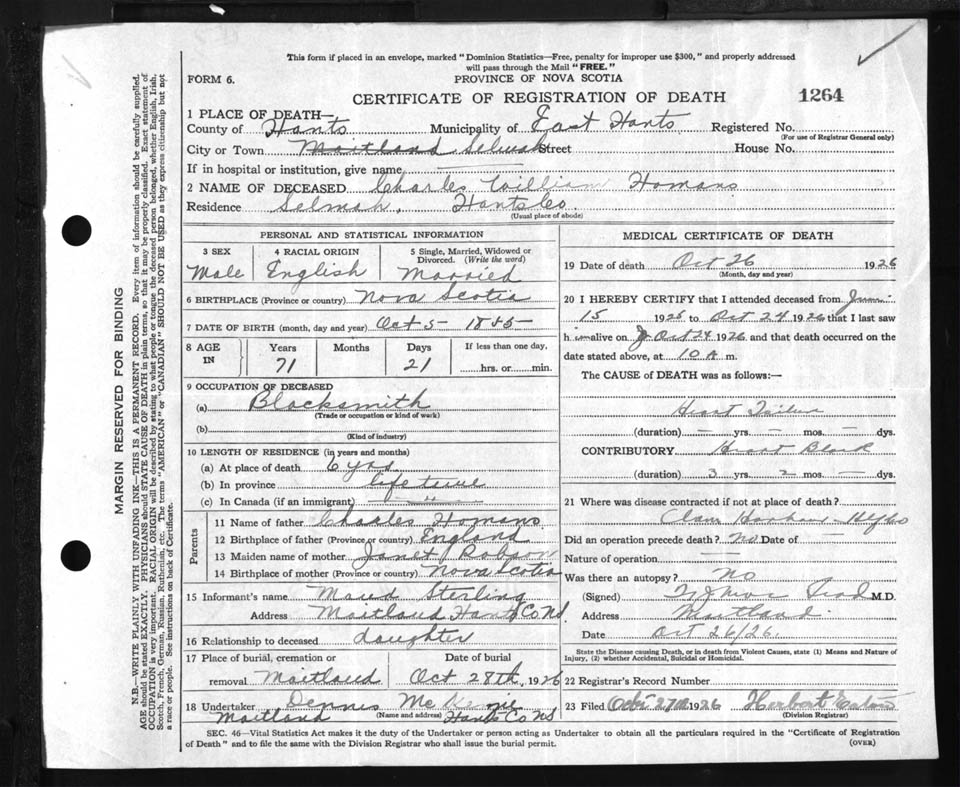 This form if placed in an envelope, marked "Dominion Statistics—Free, penalty for improper use $300," and properly addressed
will pass through the Mail "FREE."
FORM 6.
PROVINCE OF NOVA SCOTIA
CERTIFICATE OF REGISTRATION OF DEATH
1264
1 PLACE OF DEATH—
County of Hants Municipality of East Hants Registered No.
(For use of Registrar General only)
City or Town Maitland Selmah Street House No.
If in hospital or institution, give name
2 NAME OF DECEASED Charles William Homans
Residence Selmah, Hants Co.
(Usual place of abode)
PERSONAL AND STATISTICAL INFORMATION
3 SEX 4 RACIAL ORIGIN 5 Single, Married, Widowed or
Divorced. (Write the word)
Male English Married
6 BIRTHPLACE (Province or country) Nova Scotia
7 DATE OF BIRTH (month, day and year) Oct 5 1855
8 AGE IN Years Months Days If less than one day,
71 21 hrs. or min.
9 OCCUPATION OF DECEASED
(a) Blacksmith
(Trade or occupation or kind of work)
(b)
(Kind of industry)
10 LENGTH OF RESIDENCE (in years and months)
(a) At place of death 6 yrs
(b) In province life time
(c) In Canada (if an immigrant) "
Parents
11 Name of father Charles Homans
12 Birthplace of father (Province or country) England
13 Maiden name of mother Janet Robson
14 Birthplace of mother (Province or country) Nova Scotia
15 Informant's name Maud Sterling
Address Maitland Hants Co NS
16 Relationship to deceased daughter
17 Place of burial, cremation or Date of burial
removal Maitland Oct 28th, 1926
18 Undertaker Dennis McKenzie
Maitland (Name and address) Hants Co NS
MEDICAL CERTIFICATE OF DEATH
19 Date of death Oct 26 1926
(Month, day and year)
20 I HEREBY CERTIFY that I attended deceased from June
15 1925 to Oct 24 1926 that I last saw
him alive on Oct 24 1926 and that death occurred on the
date stated above, at 10 A m.
The CAUSE of DEATH was as follows:—
Heart Failure
(duration) — yrs. — mos. — dys.
CONTRIBUTORY Heart Block
(duration) 3 yrs. 2 mos. — dys.
21 Where was disease contracted if not at place of death?
Clam Harbour Hfx Co
Did an operation precede death? No Date of —
Nature of operation —
Was there an autopsy? No
(Signed) M.D.
Address Maitland.
Date Oct 26/26.
State the Disease causing Death, or in death from Violent Causes, state (1) Means and Nature of
Injury, (2) whether Accidental, Suicidal or Homicidal.
22 Registrar's Record Number
23 Filed Oct 27th 1926 Herbert Eaton
(Division Registrar)
SEC. 46—Vital Statistics Act makes it the duty of the Undertaker or person acting as Undertaker to obtain all the particulars required in the "Certificate of Registration
of Death" and to file the same with the Division Registrar who shall issue the burial permit.
(OVER)
MARGIN RESERVED FOR BINDING
N.B.—WRITE PLAINLY WITH UNFADING INK—THIS IS A PERMANENT RECORD. Every item of information should be carefully supplied.
AGE should be stated EXACTLY. PHYSICIANS should STATE CAUSE OF DEATH in plain terms, so that it may be properly classified. Exact statement of
OCCUPATION is very important. RACIAL ORIGIN will be described by stating to what people or tongue the deceased person belonged, whether English, Irish,
Scotch, French, German, Russian, Ruthenian, etc. The terms "AMERICAN" or "CANADIAN" SHOULD NOT BE USED as they express citizenship but not
a race or people. See instructions on back of Certificate.